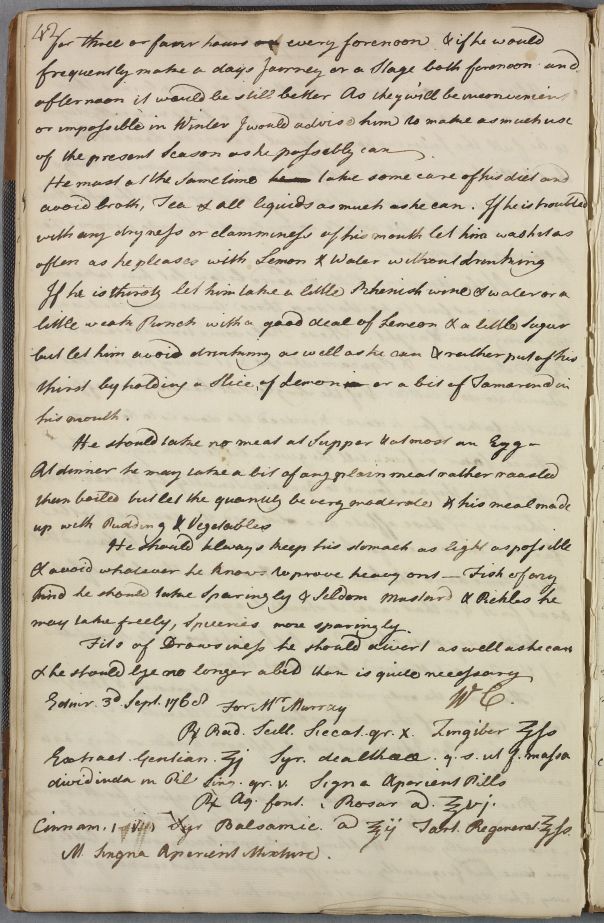 42
for three or four hours every forenoon & if he would
frequently make a days Journey or a Stage both forenoon and
afternoon it would be still better As they will be inconvenient
or impossible in Winter I would advise him to make as much use
of the present Season as he possebly can
He must at the same time take some care of his diet and
avoid broth, Tea & all liquids as much as he can. If he is troubled
with any dryness or clamminess of his mouth let him wash it as
often as he pleases with Lemon & Water without drinking
If he is thirsty let him take a little Rhenish wine & water or a
little weak Punch with a good deal of Lemeon & a little Sugar
but let him avoid drinking as well as he can & rather put of his
thirst by holding a Slice of Lemon or a bit of Tamarind in
his mouth.
He should take no meat at Supper & at most an Egg –
At dinner he may take a bit of any plain meat rather roasted
than boiled but let the quantity be very moderate & his meal made
up with Pudding & Vegetables
He should always keep his stomach as light as possible
& avoid whatever he knows to prove heavy on t — Fish of any
kind he should take Sparingly & Seldom Mustard & Pickles he
may take freely, Spiceries more sparingly.
Fits of Drowsiness he should divert as well as he can
& he should lye no longer abed than is quite necessary
Edinr. 3d Sept. 1768 For Mr Murray W C.
℞ Rad. Scill. Siccat. gr. x. Zingiber ʒſs
Extract. Gentian. ʒj Syr. dealthææ. q. s. ut f. massa
dividinda in Pil sing. gr. v. Signa Aperient Pills
℞ Aq. font. Rosar a̅. ℥vj.
Cinnam. Syr Balsamic. a̅ ℥ij Tart. Regenerat ℥ſs.
M. Singna Aperient Mixture.